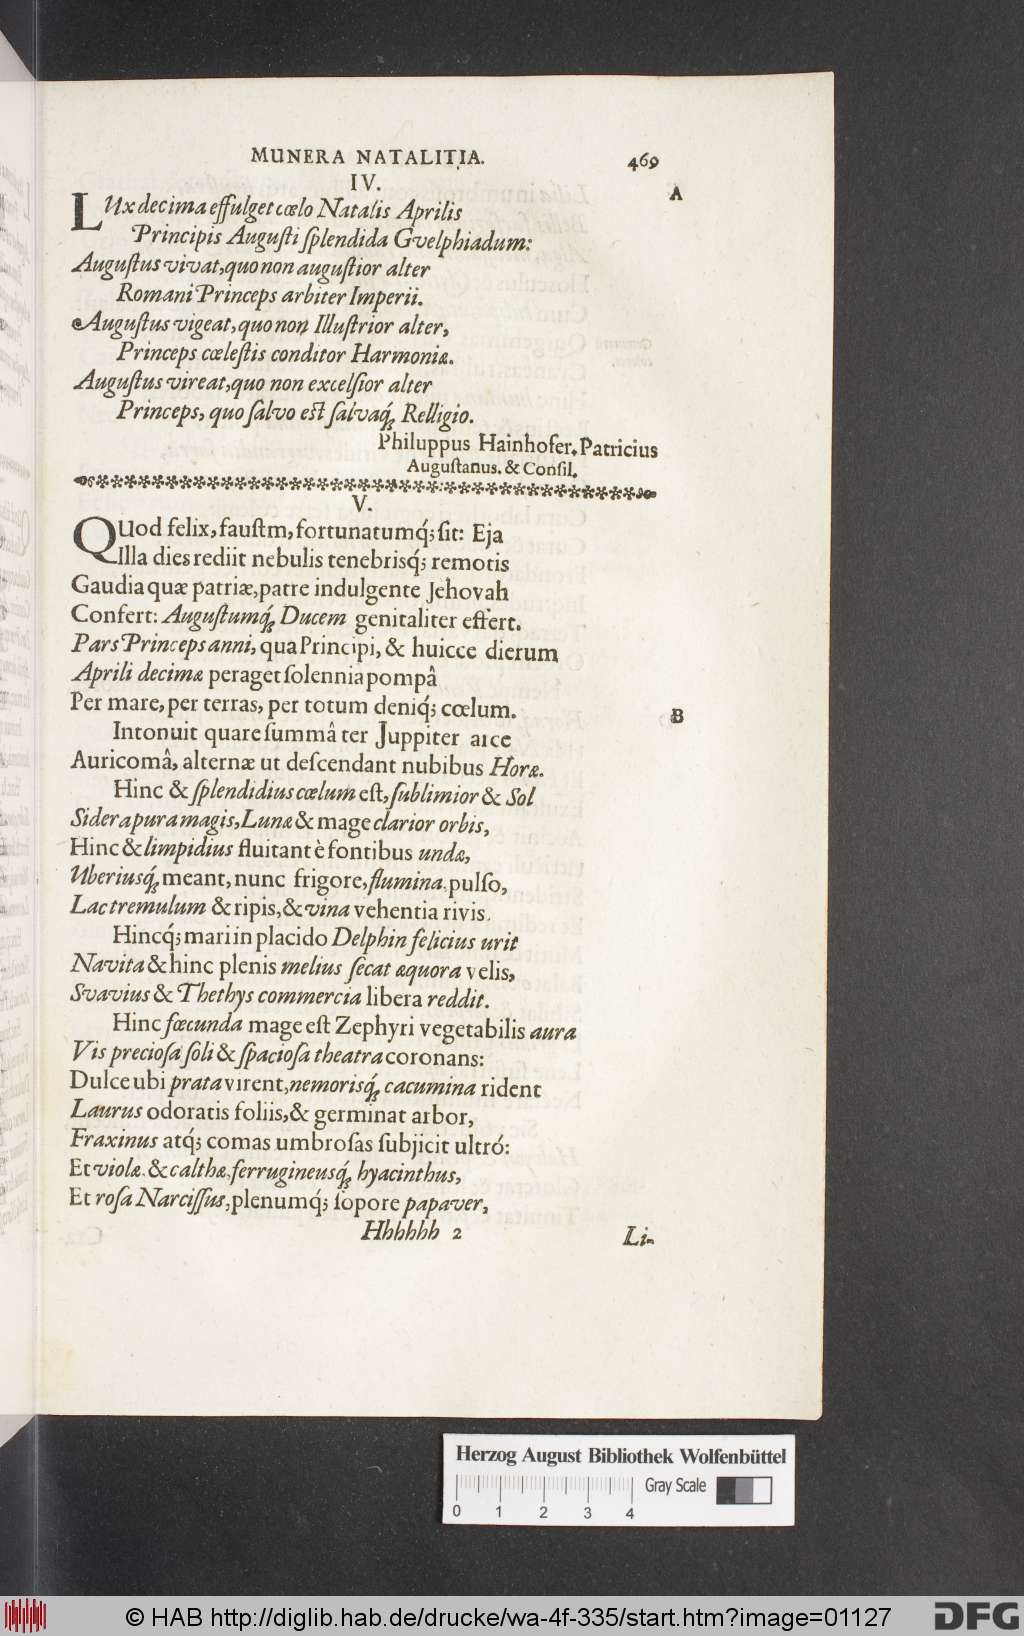 MUNERA NATALITIA. 469
IV.
A
LUx decima effulget cœlo Natalis Aprilis
Principis Augusti splendida Gvelphiadum:
Augustus vivat, quo non augustior alter
Romani Princeps arbiter Imperii.
Augustus vigeat, quo non Illustrior alter,
Princeps cœlestis conditor Harmoniæ.
Augustus vireat, quo non excelsior alter
Princeps, quo salvo est salvaq́; Relligio.
Philuppus Hainhofer. Patricius
Augustanus. & Consil.
V.
QUod felix, faustm, fortunatumq́; sit: Eja
Illa dies rediit nebulis tenebrisq́; remotis
Gaudia quæ patriæ, patre indulgente Jehovah
Confert: Augustumq́; Ducem genitaliter effert.
Pars Princeps anni, qua Principi, & huicce dierum
Aprili decimæ peraget solennia pompâ
Per mare, per terras, per totum deniq́; cœlum.
B
Intonuit quare summâ ter Juppiter arce
Auricomâ, alternæ ut descendant nubibus Horæ.
Hinc & splendidius cœlum est, sublimior & Sol
Sidera pura magis, Lunæ & mage clarior orbis,
Hinc & limpidius fluitant è fontibus undæ,
Uberiusq́; meant, nunc frigore, flumina, pulso,
Lac tremulum & ripis, & vina vehentia rivis.
Hincq́; mari in placido Delphin felicius urit
Navita & hinc plenis melius secat æquora velis,
Svavius & Thethys commercia libera reddit.
Hinc fœcunda mage est Zephyri vegetabilis aura
Vis preciosa soli & spaciosa theatra coronans:
Dulce ubi prata virent, nemorisq́; cacumina rident
Laurus odoratis foliis, & germinat arbor,
Fraxinus atq́; comas umbrosas subjicit ultró:
Et violæ. & calthæ, ferrugineusq́; hyacinthus,
Et rosa Narcissus, plenumq́; sopore papaver,
Hhhhhh 2 Li-
Herzog August Bibliothek Wolfenbüttel
Gray Scale
0 1 2 3 4
© HAB http://diglib.hab.de/drucke/wa-4f-335/start.htm?image=01127
DFG